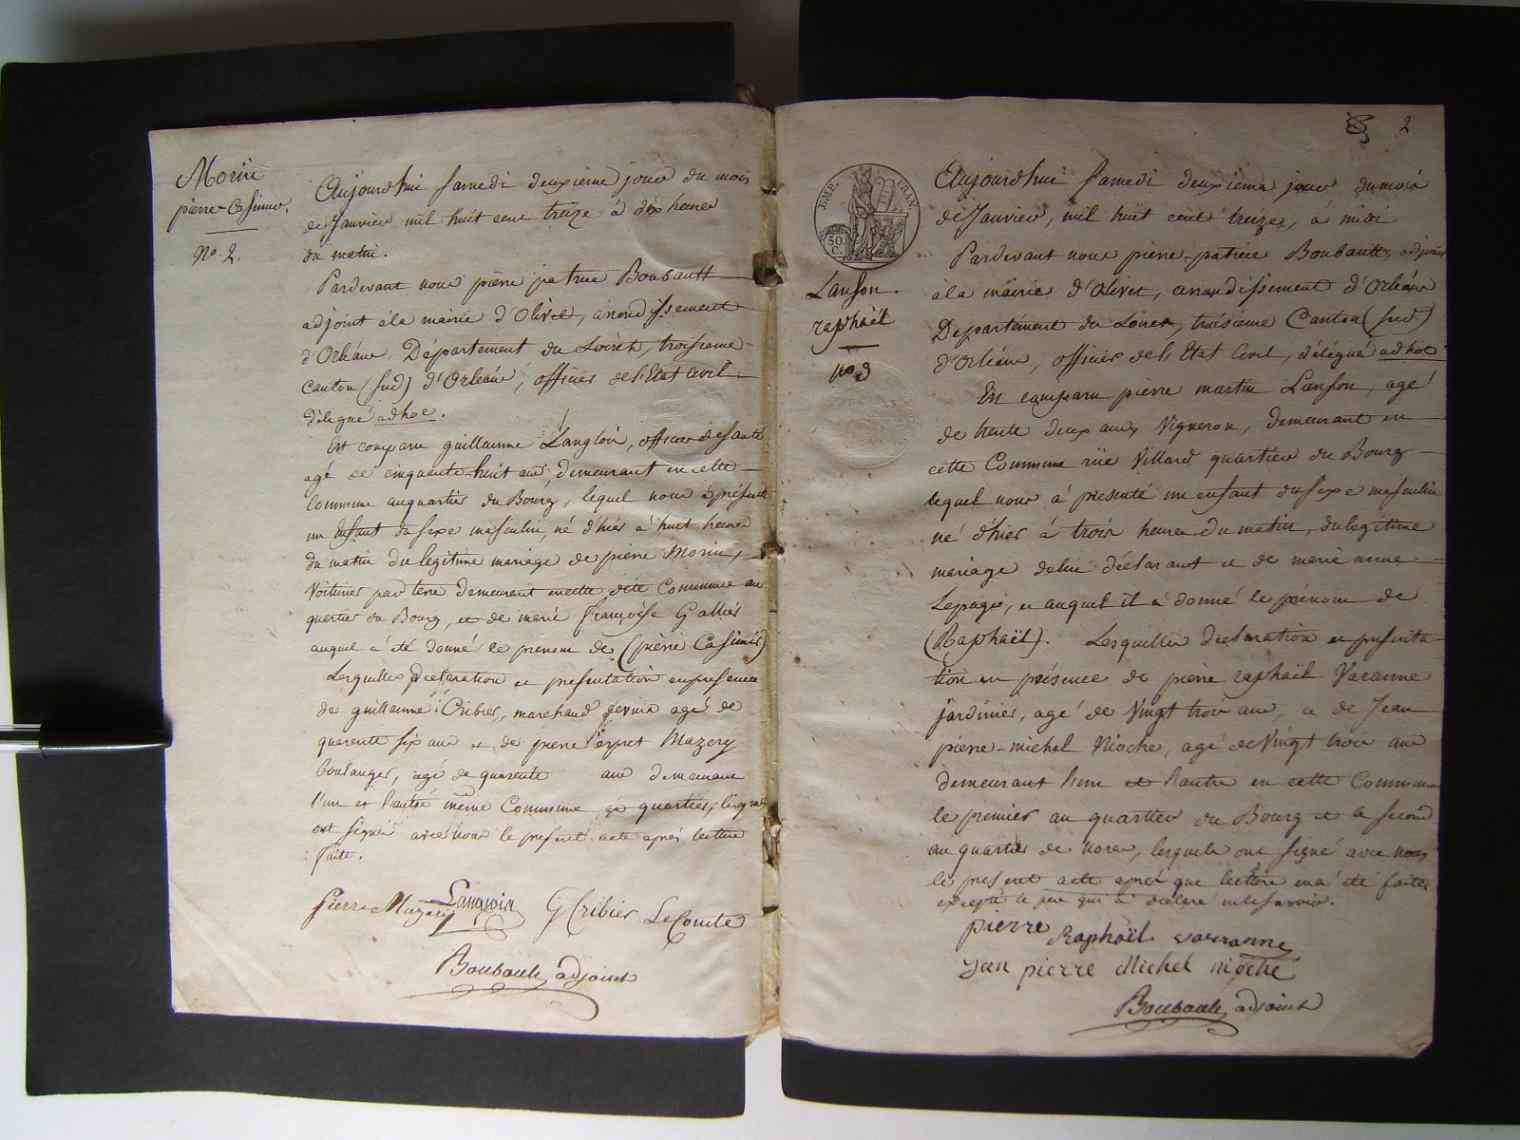 Morin
pierre-Casimir.
No. 2.
Aujourd'hui samedi deuxieme jour du mois
de Janvier mil huit cent treize à dix heures
du matin.
Pardevant nous pierre patrice Boubault
adjoint à la mairie d'Olivet, arrondissement
d'Orléans, Département du Loiret, troisieme
Canton (sud) d'Orleans, officier de l'Etat Civil
délegué adhoc.
Est comparu guillaume Langlois, officier de santé
agé de cinquante-huit ans demeurant en cette
Commune au quartier du Bourg, lequel nous a présenté
un Enfant du sexe masculin, né d'hier à huit heures
du matin du legitime mariage de pierre Morin,
Voiturier par terre demeurant en cette dite Commune au
quartier du Bourg, et de marie françoise
auquel a été donné le prenom de (pierre Casimir)
Lesquelles Declaration et presentation en presence
de guillaume Cribier, marchand agé de
quarente six ans et de pierre Mazery
boulanger, agé de quarente ans demeurant
l'un et l'autre même Commune et quartier, lesquels
ont signé avec nous le present acte après lecture
faite.
Pierre Mazery Langlois G Cribier LeComte
Boubault adjoint
2
EMP. FRAN.
50 C.
Lanson.
raphaël
no 3
Aujourd'hui Samedi deuxième jour du mois
de Janvier, mil huit cent treize, à midi
Pardevant nous pierre-patrice Boubault, adjoint
à la mairie d'Olivet, arrondissement d'Orléans
Departément du Loiret, troisieme Canton (sud)
d'Orléans, officier de l'Etat Civil, délégué adhoc
Est comparu pierre martin Lanson, agé
de trente deux ans, Vigneron, demeurant en
cette Commune rüe Villard quartier du Bourg
lequel nous à presenté un enfant du sexe masculin
né d'hier à trois heures du matin, du legitime
mariage de lui déclarant et de marie anne
Lepage, et auquel il a donné le prénom de
(Raphaël). Lesquelles declaration et presenta-
tion en présence de pierre raphaël Varanne
jardinier, agé de Vingt trois ans, et de Jean
pierre-michel Nioche, agé de Vingt trois ans
demeurant l'un et l'autre en cette Commune
le premier au quartier du Bourg et le second
au quartier de lesquels ont signé avec nous
le present acte après que lecture en a été faite
excepté le pere qui a déclaré ne le savoir.
pierre Raphaël varranne
jean pierre Michel nioche
Boubault, adjoint